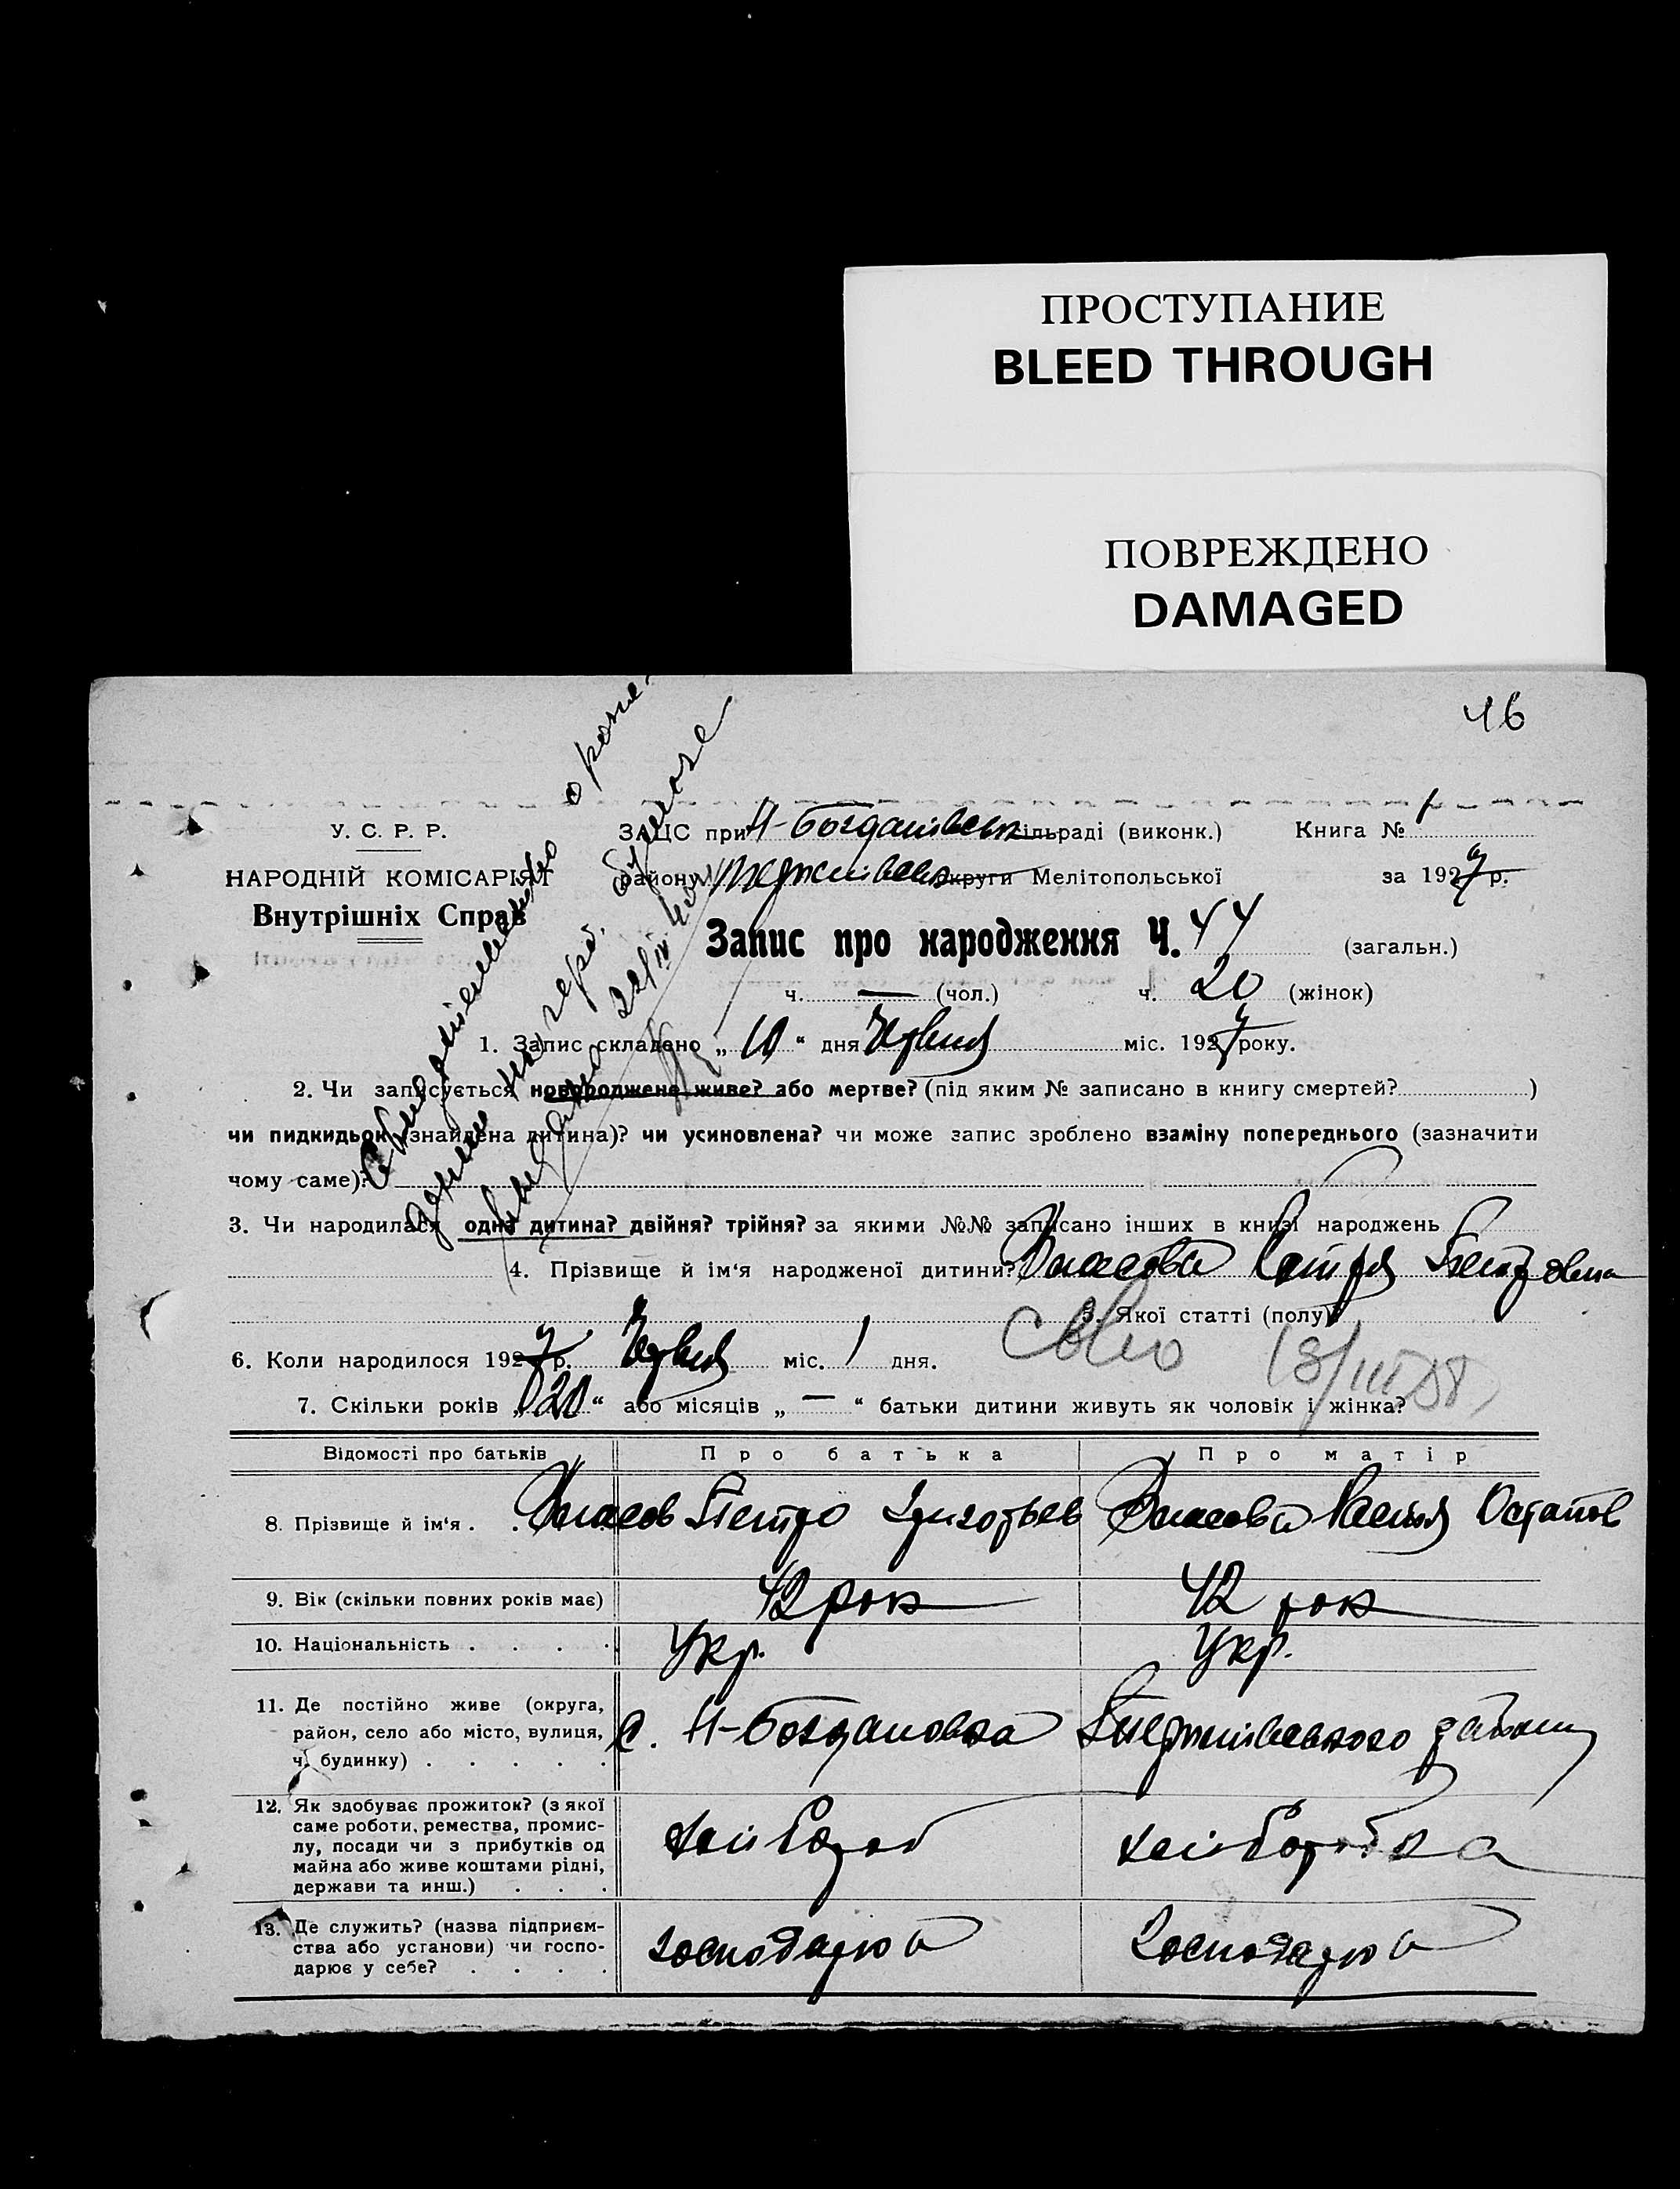 ПРОСТУПАНИЕ
BLEED THROUGH
ПОВРЕЖДЕНО
DAMAGED
46
У. С. Р. Р.
ЗАПИС при Н-Богданівськ сільраді (виконк.) Книга № 1
НАРОДНІЙ КОМІСАРІЯТ
району округи Мелітопольської за 192 р.
Внутрішніх Справ
Запис про народження Ч. 44 (загальн.)
ч. — (чол.) ч. 20 (жінок)
1. Запис складено „ 10 “ дня Червня міс. 192 року.
2. Чи записується новороджене живе? або мертве? (під яким № записано в книгу смертей? )
чи пидкидьок (знайдена дитина)? чи усиновлена? чи може запис зроблено взаміну попереднього (зазначити
чому саме)?
3. Чи народилася одна дитина? двійня? трійня? за якими №№ записано інших в книзі народжень
4. Прізвище й ім‘я народженої дитини? Власова Катря Петровна
5. Якої статті (полу)?
6. Коли народилося 192 р. Червня міс. 1 дня.
13/III 58
7. Скільки років „ 20 “ або місяців „ — “ батьки дитини живуть як чоловік і жінка?
Відомості про батьків Про батька Про матір
8. Прізвище й ім‘я . . Власов Петро Григорьев Власова Остапов
9. Вік (скільки повних років має) 42 рок 42 рок
10. Національність . . . . Укр. Укр.
11. Де постійно живе (округа,
район, село або місто, вулиця,
ч. будинку) . . . . .
с. Н-Богдановка району
12. Як здобуває прожиток? (з якої
саме роботи, ремества, промис-
лу, посади чи з прибутків од
майна або живе коштами рідні,
держави та инш.) . . .
хлібороб хліборобка
13. Де служить? (назва підприєм-
ства або установи) чи госпо-
дарює у себе? . . . .
господарює господарює